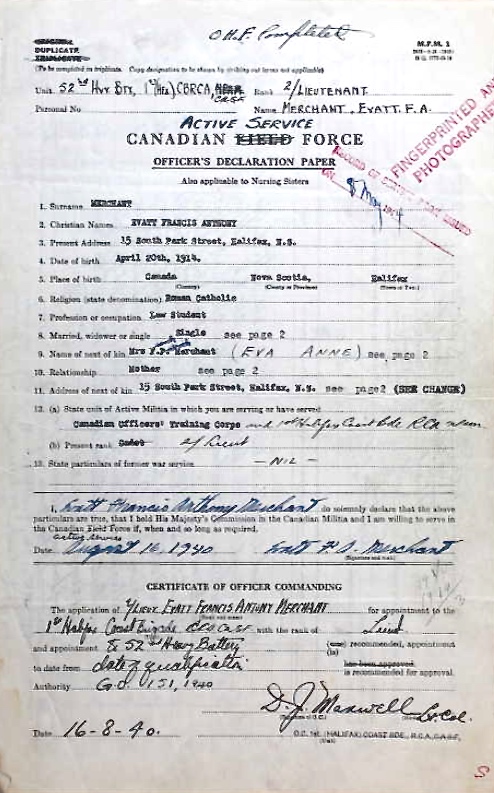 O.H.F. Completed
ORIGINAL
DUPLICATE
TRIPLICATE
M.F.M. 1
(To be completed in triplicate. Copy designation to be shown by striking out terms not applicable)
Unit. 52nd Hvy Bty, 1st (Hfx) CBRCA, CASF Rank 2/LIEUTENANT
Personal No Name MERCHANT, EVATT. F. A.
FINGERPRINTED AND
PHOTOGRAPHED
ACTIVE SERVICE
CANADIAN FIELD FORCE
OFFICER'S DECLARATION PAPER
Also applicable to Nursing Sisters
8 May
1. Surname MERCHANT
2. Christian Names EVATT FRANCIS ANTHONY
3. Present Address 15 South Park Street, Halifax, N.S.
4. Date of birth April 20th, 1914.
5. Place of birth Canada Nova Scotia, Halifax
(Country) (County or Province) (Town or City)
6. Religion (state denomination) Roman Catholic
7. Profession or occupation Law Student
8. Married, widower or single Single see page 2
9. Name of next of kin Mrs F.P. Merchant (EVA ANNE) see page 2
10. Relationship Mother see page 2
11. Address of next of kin 15 South Park Street, Halifax, N.S. see page2 (SEE CHANGE)
12. (a) State unit of Active Militia in which you are serving or have served
Canadian Officers' Training Corps and 1st Halifax Coast Bde RCA
(b) Present rank Cadet 2/Lieut
13. State particulars of former war service — NIL —
I, Evatt Francis Anthony Merchant do solemnly declare that the above
particulars are true, that I hold His Majesty's Commission in the Canadian Militia and I am willing to serve in
the Canadian Field Force if, when and so long as required.
active service
Date August 16, 1940 Evatt F. A. Merchant
CERTIFICATE OF OFFICER COMMANDING
The application of 2/LIEUT. EVATT FRANCIS ANTONY MERCHANT for appointment to the
1st Halifax Coast Brigade CASF with the rank of Lieut
and appointment & 52nd Heavy Battery recommended, appointment
to date from date of qualification has been approved.
is recommended for approval.
Authority G.O. 151, 1940
D. J. Maxwell Lt. Col.
(Signature of O.C.)
Date 16-8-40. O.C. 1st. (HALIFAX) COAST BDE., R.C.A., C.A.S.F.
(Unit)